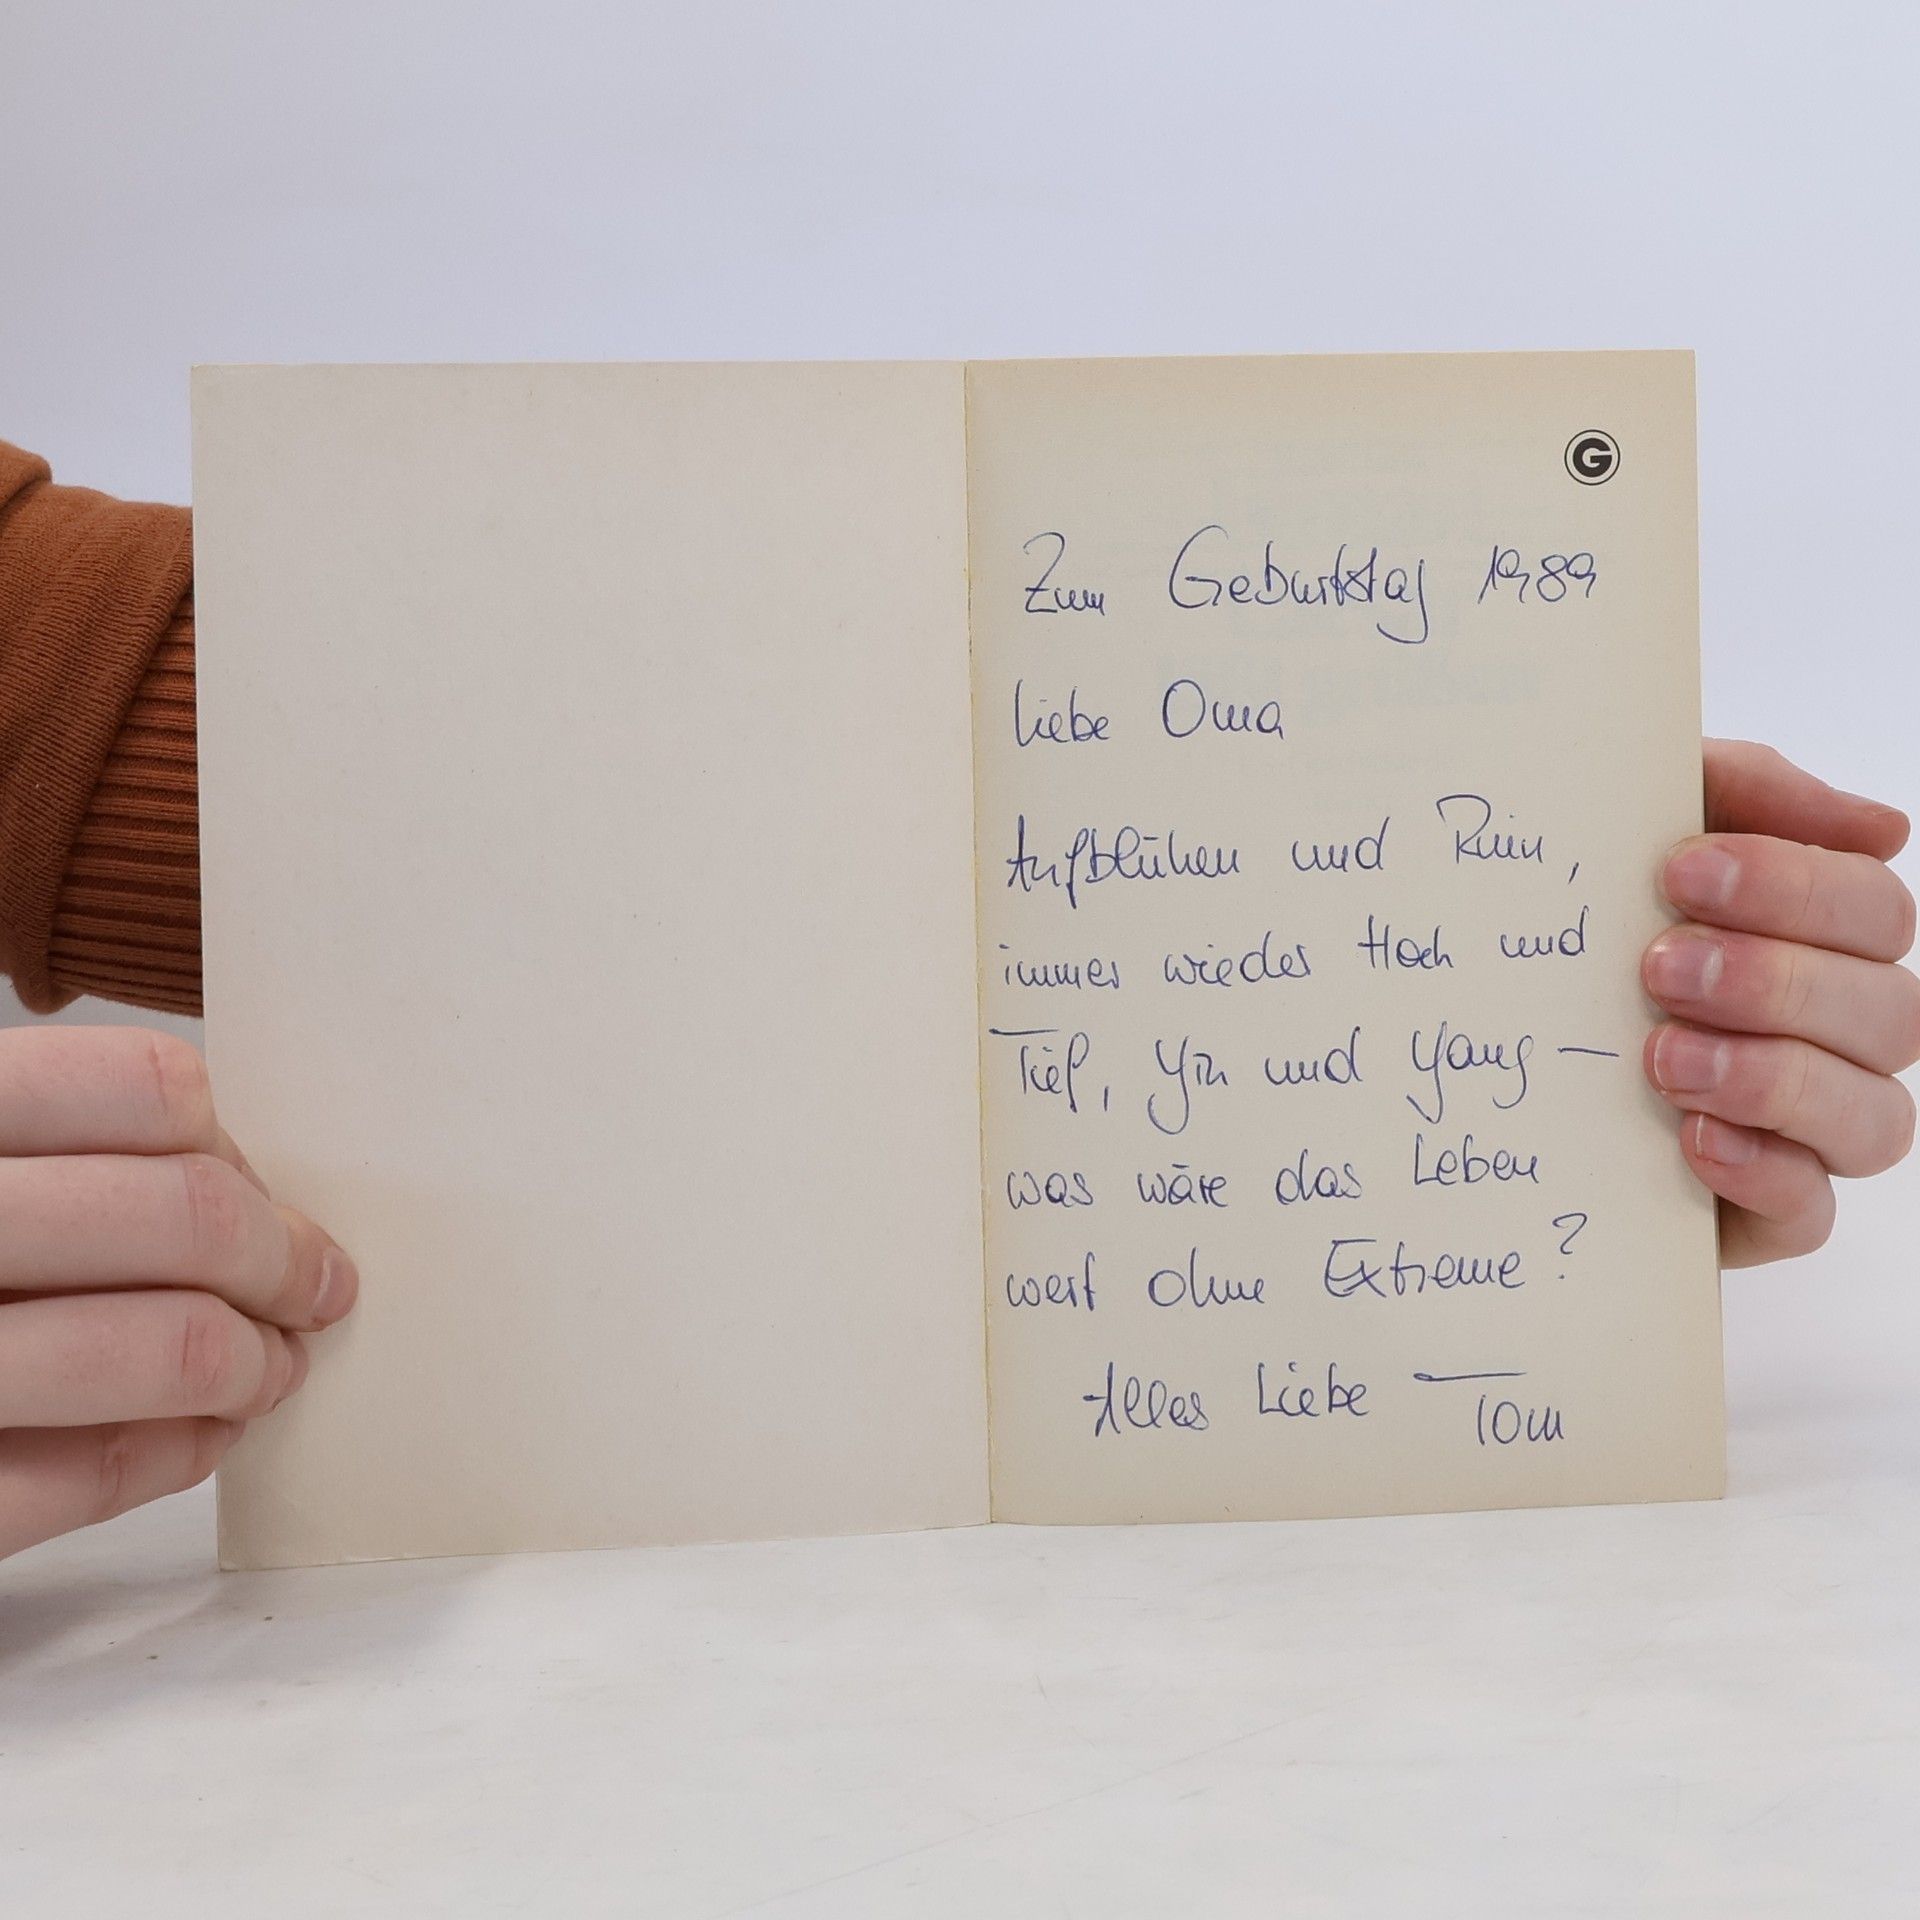 G
Zum Geburtstag 1989
liebe Oma
Aufblühen und Ruin,
immer wieder Hoch und
Tief, Yin und Yang —
was wäre das Leben
wert ohne Extreme?
Alles Liebe
Tom